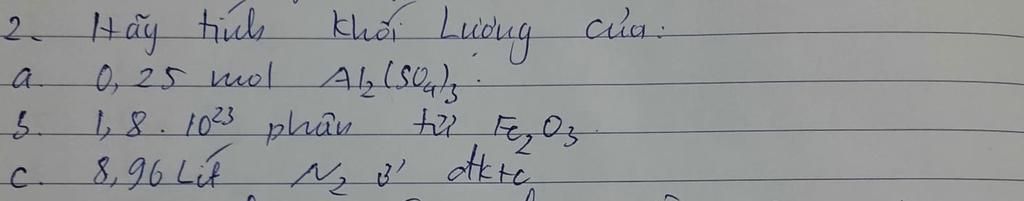 2. Hãy tính khối Lượng của:
a. 0,25 mol Al₂(SO₄)₃.
b. 1,8.10²³ phân tử Fe₂O₃.
c. 8,96 Lít N₂ ở đktc